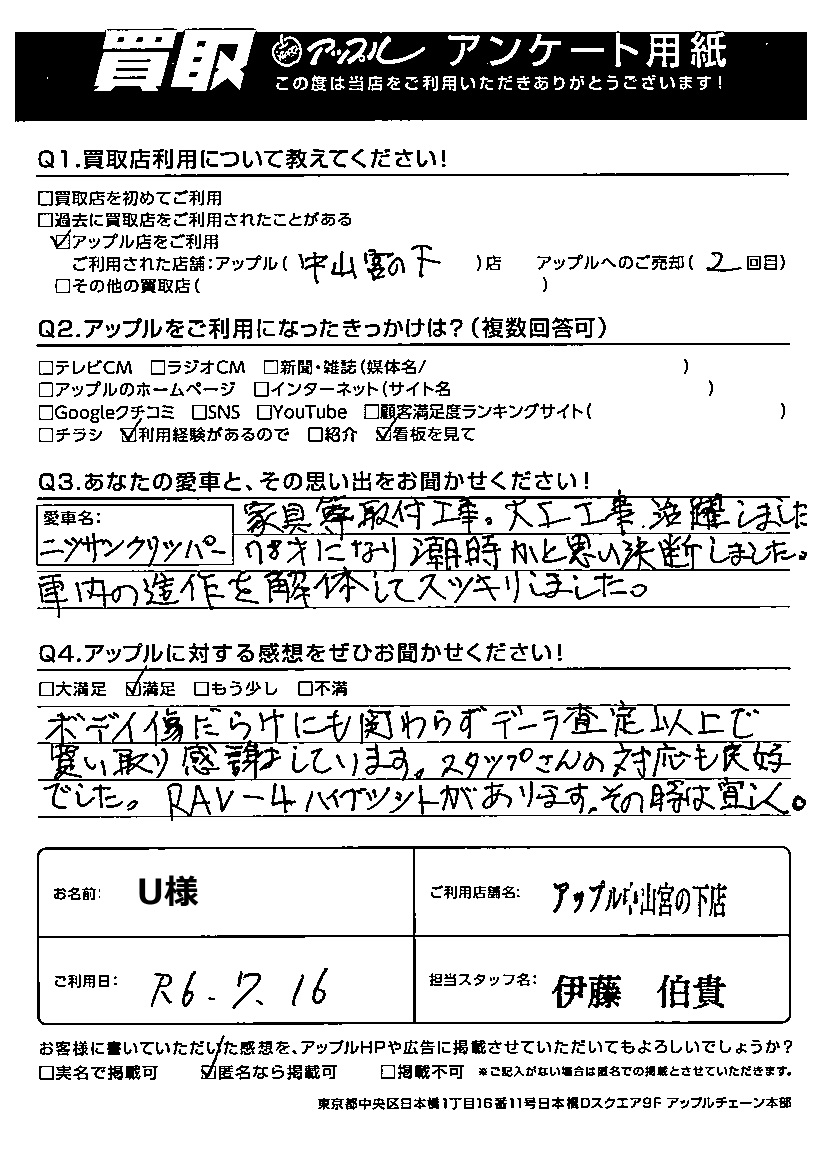 買取 アップル アンケート用紙
この度は当店をご利用いただきありがとうございます!
Q1.買取店利用について教えてください!
□買取店を初めてご利用
□過去に買取店をご利用されたことがある
☑アップル店をご利用
ご利用された店舗:アップル( 中山宮の下 )店 アップルへのご売却( 2 回目)
□その他の買取店( )
Q2.アップルをご利用になったきっかけは?(複数回答可)
□テレビCM □ラジオCM □新聞・雑誌(媒体名/ )
□アップルのホームページ □インターネット(サイト名 )
□Googleクチコミ □SNS □YouTube □顧客満足度ランキングサイト( )
□チラシ ☑利用経験があるので □紹介 ☑看板を見て
Q3.あなたの愛車と、その思い出をお聞かせください!
愛車名:
ニッサンクリッパー
家具等取付工事。大工工事、活躍しました
78才になり潮時かと思い決断しました。
車内の造作を解体してスッキリしました。
Q4.アップルに対する感想をぜひお聞かせください!
□大満足 ☑満足 □もう少し □不満
ボデイ傷だらけにも関わらずデーラ査定以上で
買い取り感謝しています。スタップさんの対応も良好
でした。RAV-4ハイブッシトがあります。その時は宜しく。
お名前: U様
ご利用店舗名: アップル中山宮の下店
ご利用日: R6.7.16
担当スタッフ名: 伊藤 伯貴
お客様に書いていただいた感想を、アップルHPや広告に掲載させていただいてもよろしいでしょうか?
□実名で掲載可 ☑匿名なら掲載可 □掲載不可 ※ご記入がない場合は匿名での掲載とさせていただきます。
東京都中央区日本橋1丁目16番11号日本橋Dスクエア9F アップルチェーン本部